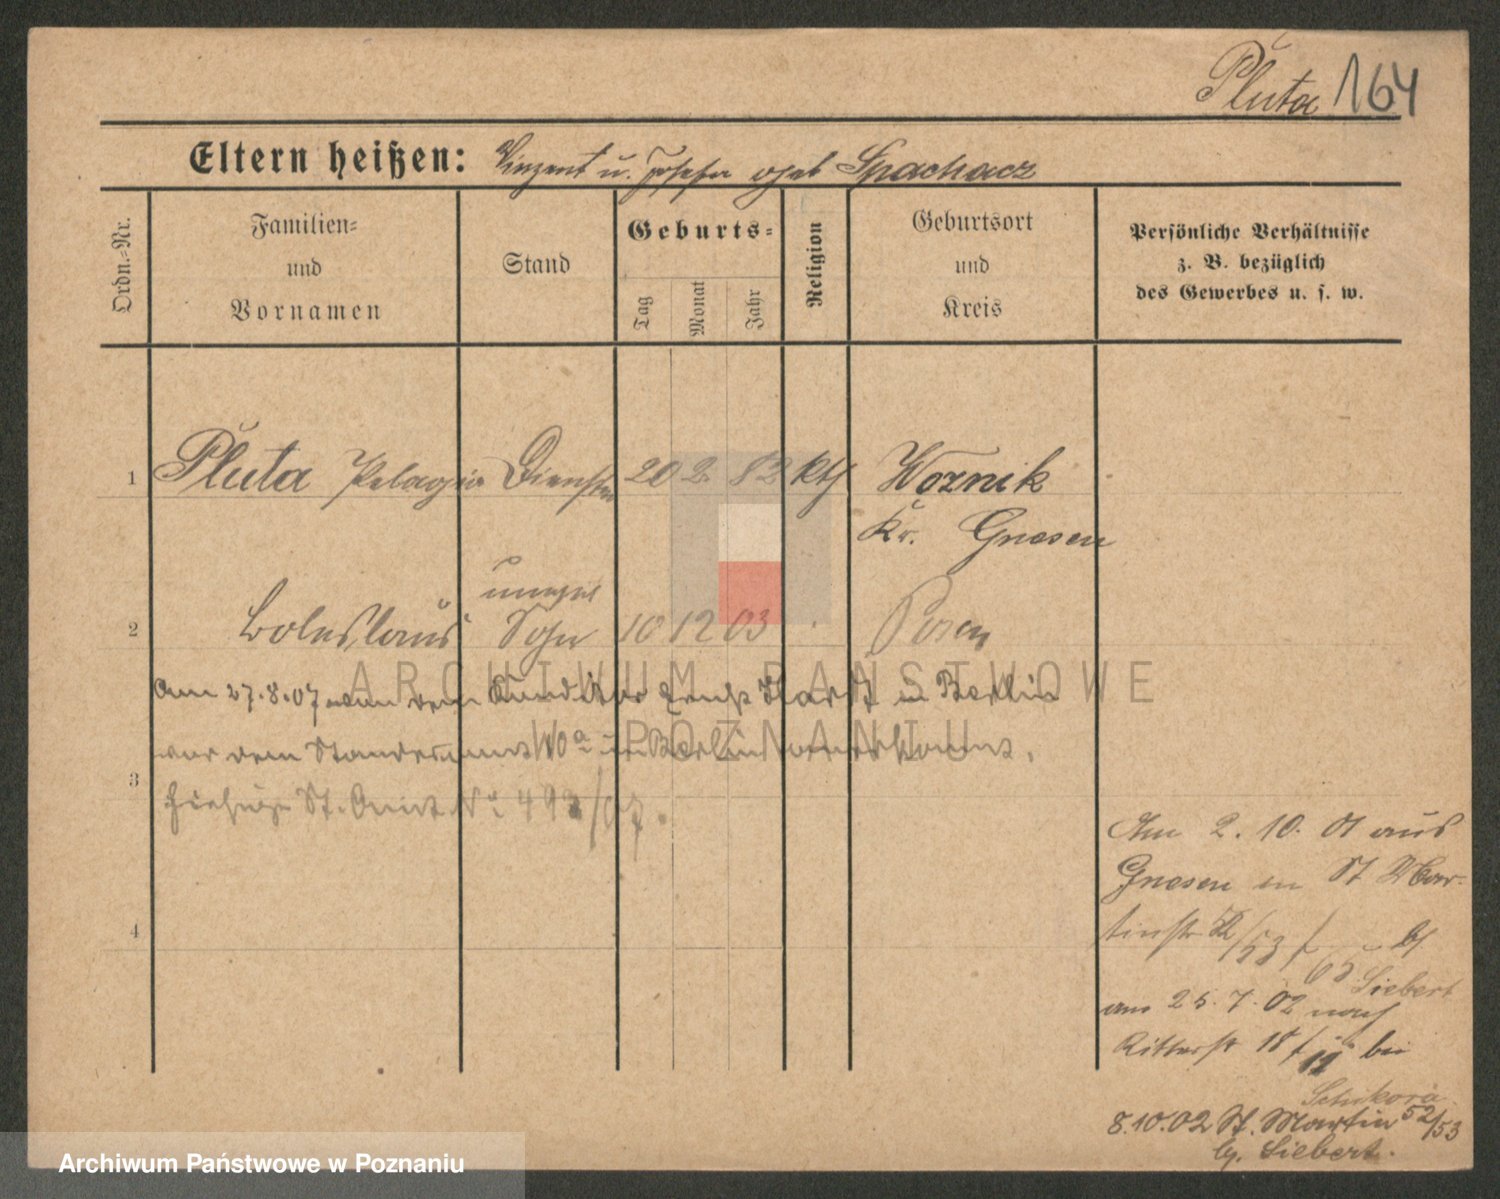 Pluta 164
Eltern heißen: Vinzent u. Josefa geb Spachacz
Ordn.-Nr.
Familien-
und
Vornamen
Stand
Geburts-
Tag
Monat
Jahr
Religion
Geburtsort
und
Kreis
Persönliche Verhältnisse
z. B. bezüglich
des Gewerbes u. s. w.
1 Pluta Pelagia 20 2 82 kth Woznik
Kr. Gnesen
unehel
2 Boleslaus Sohn 10 12 03 Posen
ARCHIWUM PAŃSTWOWE
W POZNANIU
Am 27.8.07 von dem Ernst in Berlin
vor dem Standesamt 10a in Berlin anerkannt.
3
St. Amt No 493/07.
4
Am 2. 10. 01 aus
Gnesen in St Mar-
tinstr 52/53 bei
Siebert
am 25. 7. 02 nach
Ritterstr 18 bei
8.10.02 St. Martin 52/53
bei Siebert.
Archiwum Państwowe w Poznaniu